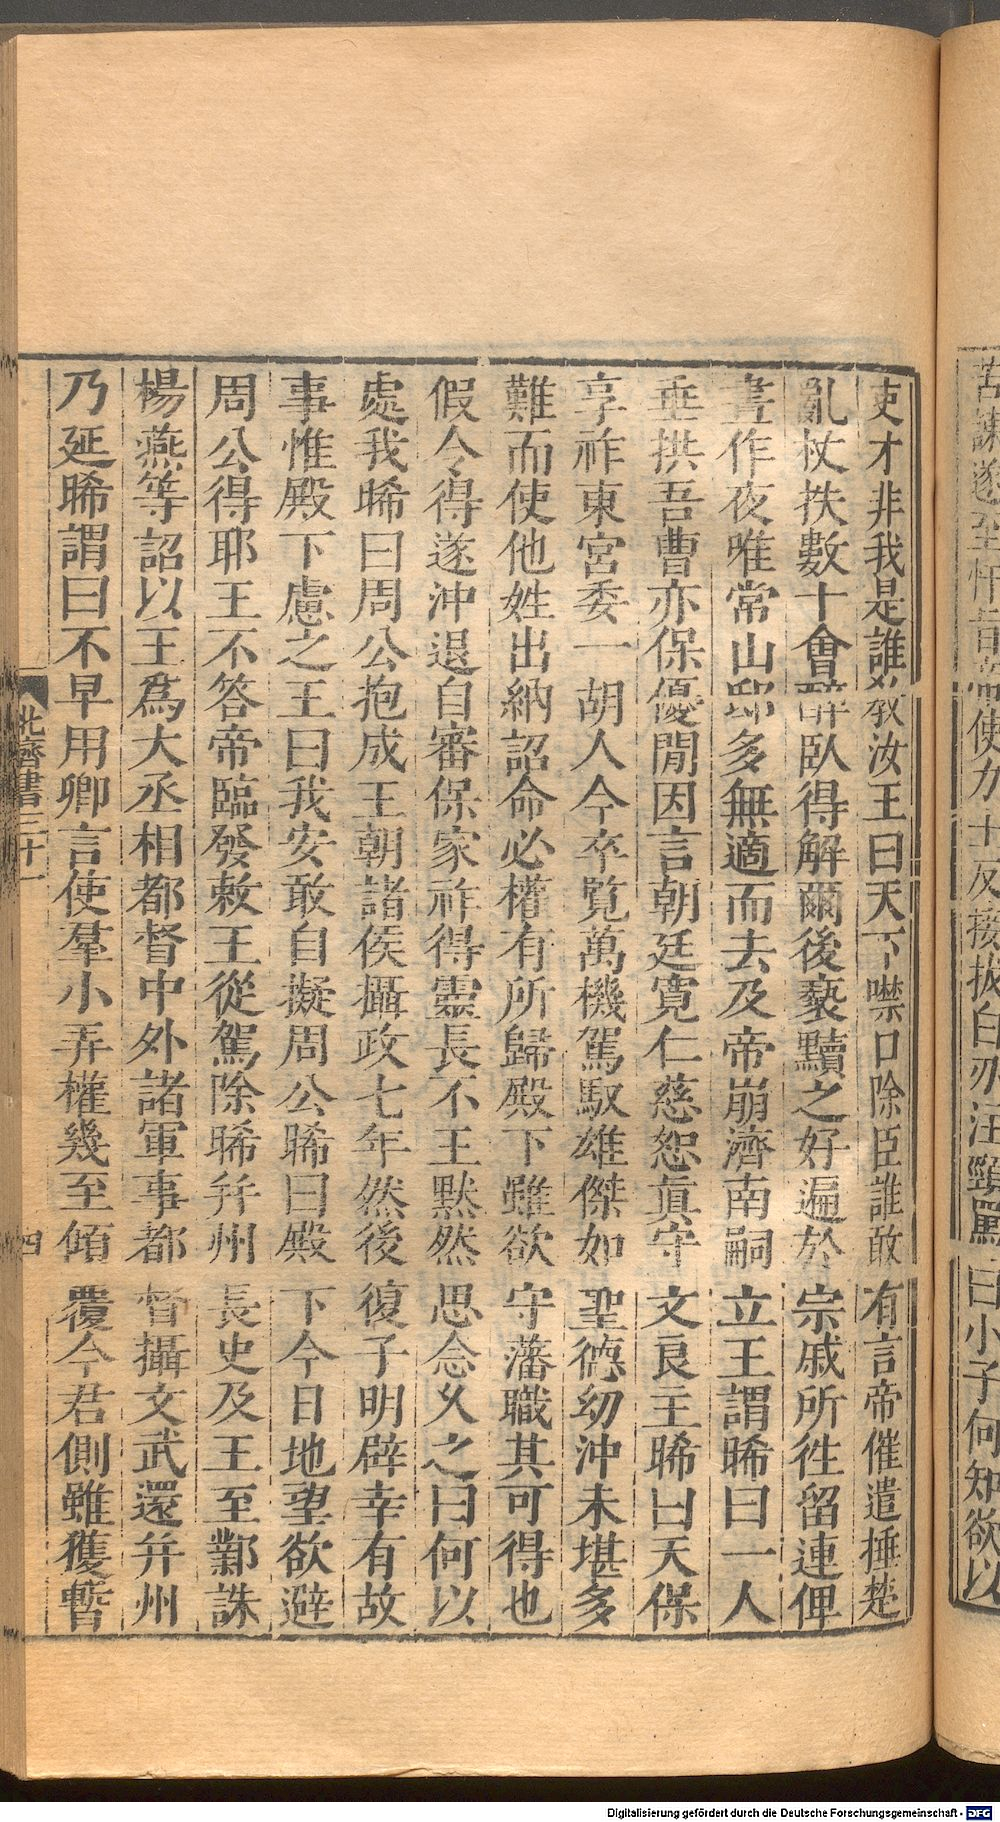 吏才非我是誰教汝王曰天下噤口除臣誰敢有言帝催遣捶楚
亂杖抶數十會醉臥得解爾後褻黷之好遍於宗戚所徃留連俾
晝作夜唯常山邸多無適而去及帝崩濟南嗣立王謂晞曰一人
垂拱吾曹亦保優閒因言朝廷寬仁慈恕真守文良主晞曰天保
享祚東宮委一胡人今卒覧萬機駕馭雄傑如聖德幼沖未堪多
難而使他姓出納詔命必權有所歸殿下雖欲守藩職其可得也
假令得遂沖退自審保家祚得靈長不王黙然思念乆之曰何以
處我晞曰周公抱成王朝諸侯攝政七年然後復子明辟幸有故
事惟殿下慮之王曰我安敢自擬周公晞曰殿下今日地望欲避
周公得耶王不答帝臨發敕王從駕除晞幷州長史及王至鄴誅
楊燕等詔以王爲大丞相都督中外諸軍事都督攝文武還幷州
乃延晞謂曰不早用卿言使羣小弄權幾至傾覆今君側雖獲暫
北齊書三十一
四
使力士反接拔白刃注頸罵曰小子何知欲以
Digitalisierung gefördert durch die Deutsche Forschungsgemeinschaft - DFG